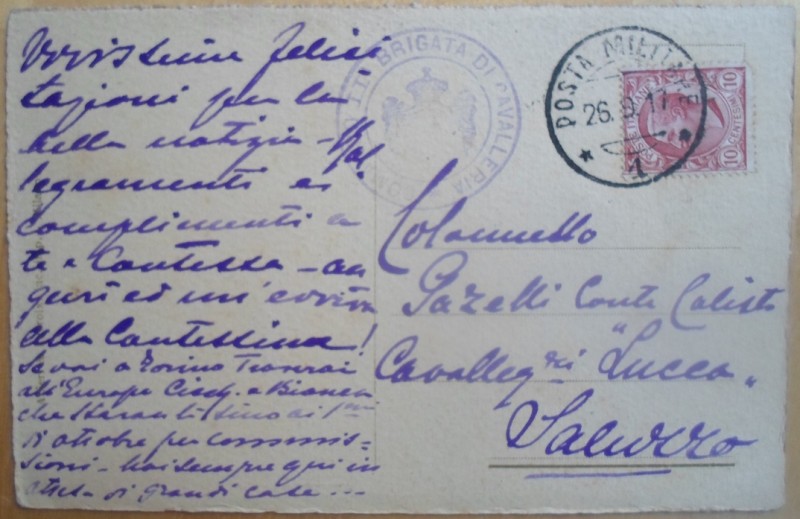 Vivissime felici
tazioni per la
bella notizia - Ral
legramenti ei
complimenti a
te e Contessa - au
guri ed un'evviva
alla Contessina!
Se vai a Torino troverai
all'Europa e Bianca
che staranno lì fino ai primi
di ottobre per commis-
sioni - hai sempre qui in
attesa di grandi cose ...
III BRIGATA DI CAVALLERIA
POSTA MILITARE
26. 9. 17
1
10 10
CENTESIMI
Colonnello
Gazelli Conte Calisto
Cavalleg.eri "Lucca"
Saluzzo